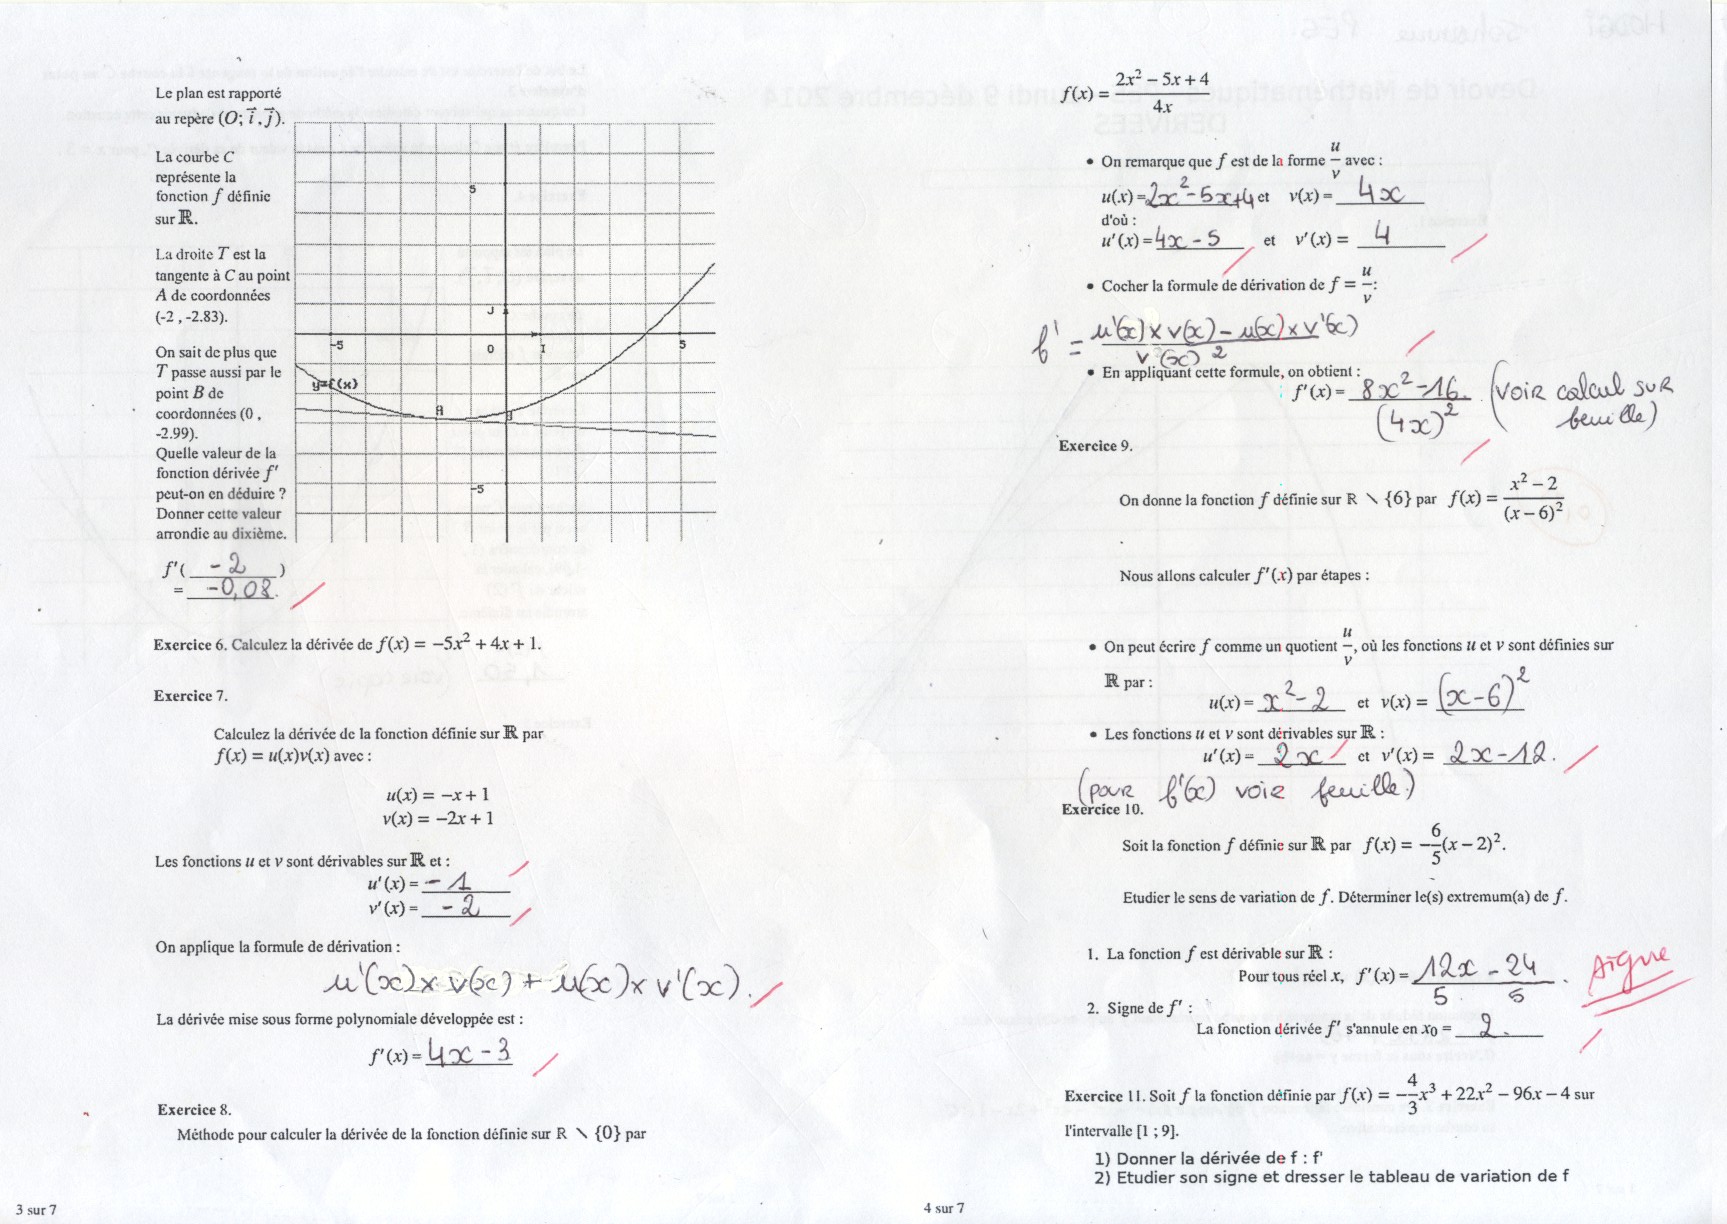 Le plan est rapporté
au repère (O; i⃗, j⃗).
La courbe C
représente la
fonction f définie
sur ℝ.
La droite T est la
tangente à C au point
A de coordonnées
(-2 , -2.83).
On sait de plus que
T passe aussi par le
point B de
coordonnées (0 ,
-2.99).
Quelle valeur de la
fonction dérivée f'
peut-on en déduire ?
Donner cette valeur
arrondie au dixième.
5
J
-5 O I 5
y=f(x)
A
-5
f'( -2 )
= -0,08.
Exercice 6. Calculez la dérivée de f(x) = −5x² + 4x + 1.
Exercice 7.
Calculez la dérivée de la fonction définie sur ℝ par
f(x) = u(x)v(x) avec :
u(x) = −x + 1
v(x) = −2x + 1
Les fonctions u et v sont dérivables sur ℝ et :
u'(x) = -1
v'(x) = -2
On applique la formule de dérivation :
u'(x) × v(x) + u(x) × v'(x).
La dérivée mise sous forme polynomiale développée est :
f'(x) = 4x - 3
Exercice 8.
Méthode pour calculer la dérivée de la fonction définie sur ℝ ∖ {0} par
3 sur 7
f(x) = (2x² − 5x + 4)/(4x)
• On remarque que f est de la forme u/v avec :
u(x) = 2x² - 5x + 4 et v(x) = 4x
d'où :
u'(x) = 4x - 5 et v'(x) = 4
• Cocher la formule de dérivation de f = u/v:
f' = (u'(x) × v(x) - u(x) × v'(x))/(v(x)²)
• En appliquant cette formule, on obtient :
f'(x) = (8x² - 16)/(4x)² (voir calcul sur
feuille)
Exercice 9.
On donne la fonction f définie sur ℝ ∖ {6} par f(x) = (x² − 2)/(x − 6)²
Nous allons calculer f'(x) par étapes :
• On peut écrire f comme un quotient u/v, où les fonctions u et v sont définies sur
ℝ par :
u(x) = x² - 2 et v(x) = (x - 6)²
• Les fonctions u et v sont dérivables sur ℝ :
u'(x) = 2x et v'(x) = 2x - 12.
(pour f'(x) voir feuille)
Exercice 10.
Soit la fonction f définie sur ℝ par f(x) = −6/5(x − 2)².
Etudier le sens de variation de f. Déterminer le(s) extremum(a) de f.
1. La fonction f est dérivable sur ℝ :
Pour tous réel x, f'(x) = 12x/5 - 24/5 . signe
2. Signe de f' :
La fonction dérivée f' s'annule en x₀ = 2.
Exercice 11. Soit f la fonction définie par f(x) = −4/3x³ + 22x² − 96x − 4 sur
l'intervalle [1 ; 9].
1) Donner la dérivée de f : f'
2) Etudier son signe et dresser le tableau de variation de f
4 sur 7